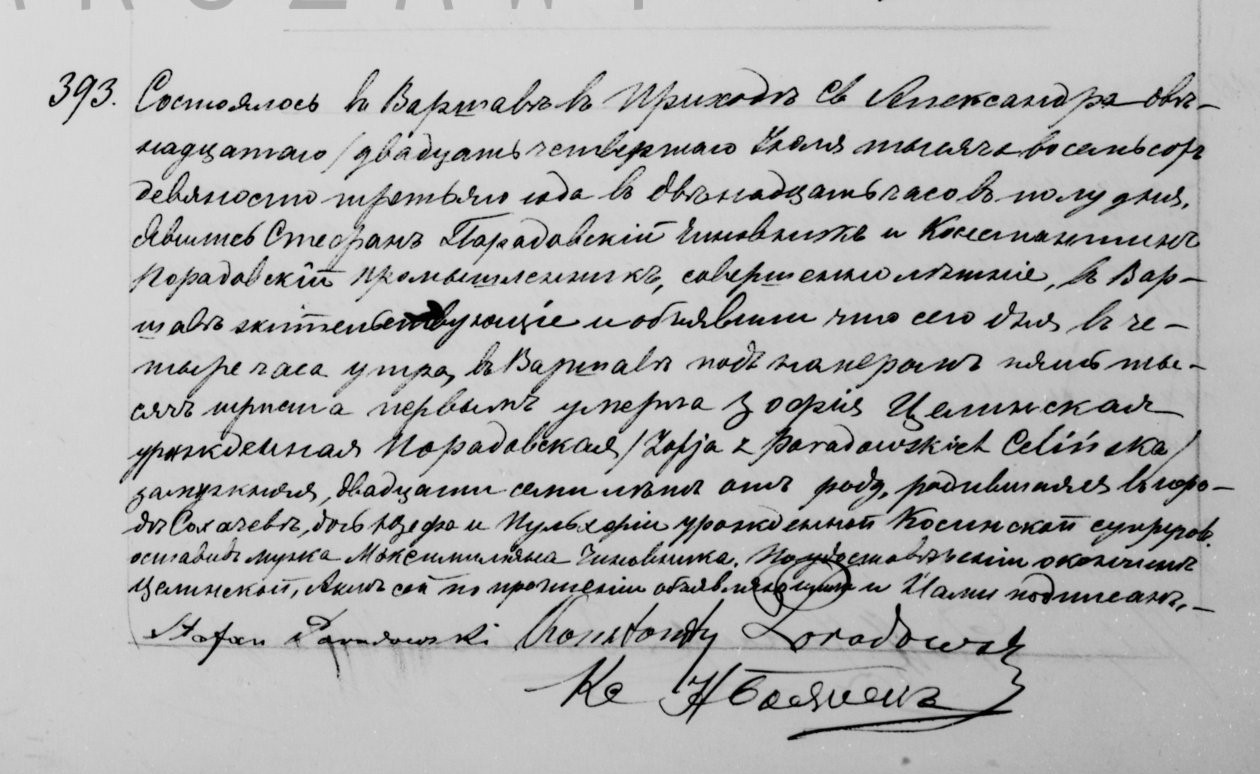 ARSZAWY
393. Состоялось въ Варшавѣ въ Приходѣ Св Александра двѣ-
надцатаго / двадцать четвертаго Іюля тысяча восемьсотъ
девяносто третьяго года въ двѣнадцать часовъ полудня.
Явились Стефанъ Парадовскій Чиновникъ и Константинъ
Порадовскій промышленникъ, совершеннолѣтніе, въ Вар-
шавѣ жительствующіе и объявили что сего дня въ че-
тыре часа утра, въ Варшавѣ подъ номеромъ пять ты-
сячъ триста первымъ умерла Зофія Целинская
урожденная Порадовская / Zofja z Poradowskich Celińska /
замужняя, двадцати семи лѣтъ отъ роду, родившаяся въ горо-
дѣ Сохачевѣ, дочь Юзефа и Пульхеріи урожденной Косинской супруговъ.
оставивъ мужа Максимиліана Чиновника. По удостовѣреніи о кончинѣ
Целинской, Актъ сей по прочтеніи объявляющими и Нами подписанъ. –
Stefan Poradowski Konstanty Poradowski
Кс